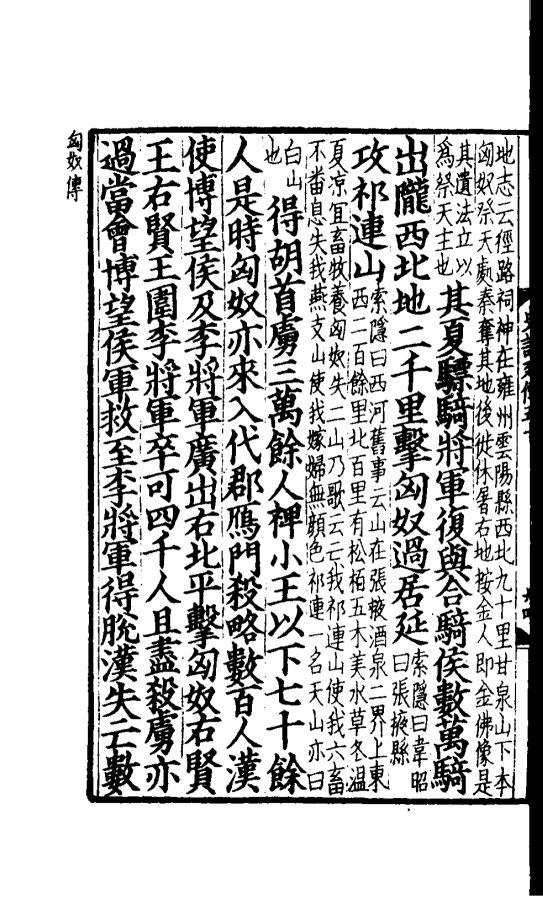 地志云徑路祠神在雍州雲陽縣西北九十里甘泉山下本
匈奴祭天處秦奪其地後徙休屠右地按金人即金佛像是
其遺法立以
爲祭天主也
其夏驃騎將軍復與合騎侯數萬騎
出隴西北地二千里擊匈奴過居延
索隱曰韋昭
曰張掖縣
攻祁連山
索隱曰西河舊事云山在張掖酒泉二界上東
西二百餘里北百里有松栢五木美水草冬温
夏凉宜畜牧養匈奴失二山乃歌云亡我祁連山使我六畜
不畨息失我燕支山使我嫁婦無顔色祁連一名天山亦曰
白山
也
得胡首虜三萬餘人裨小王以下七十餘
人是時匈奴亦來入代郡鴈門殺略數百人漢
使博望侯及李將軍廣出右北平擊匈奴右賢
王右賢王圍李將軍卒可四千人且盡殺虜亦
過當會博望侯軍救至李將軍得脫漢失亡數
匈奴傳